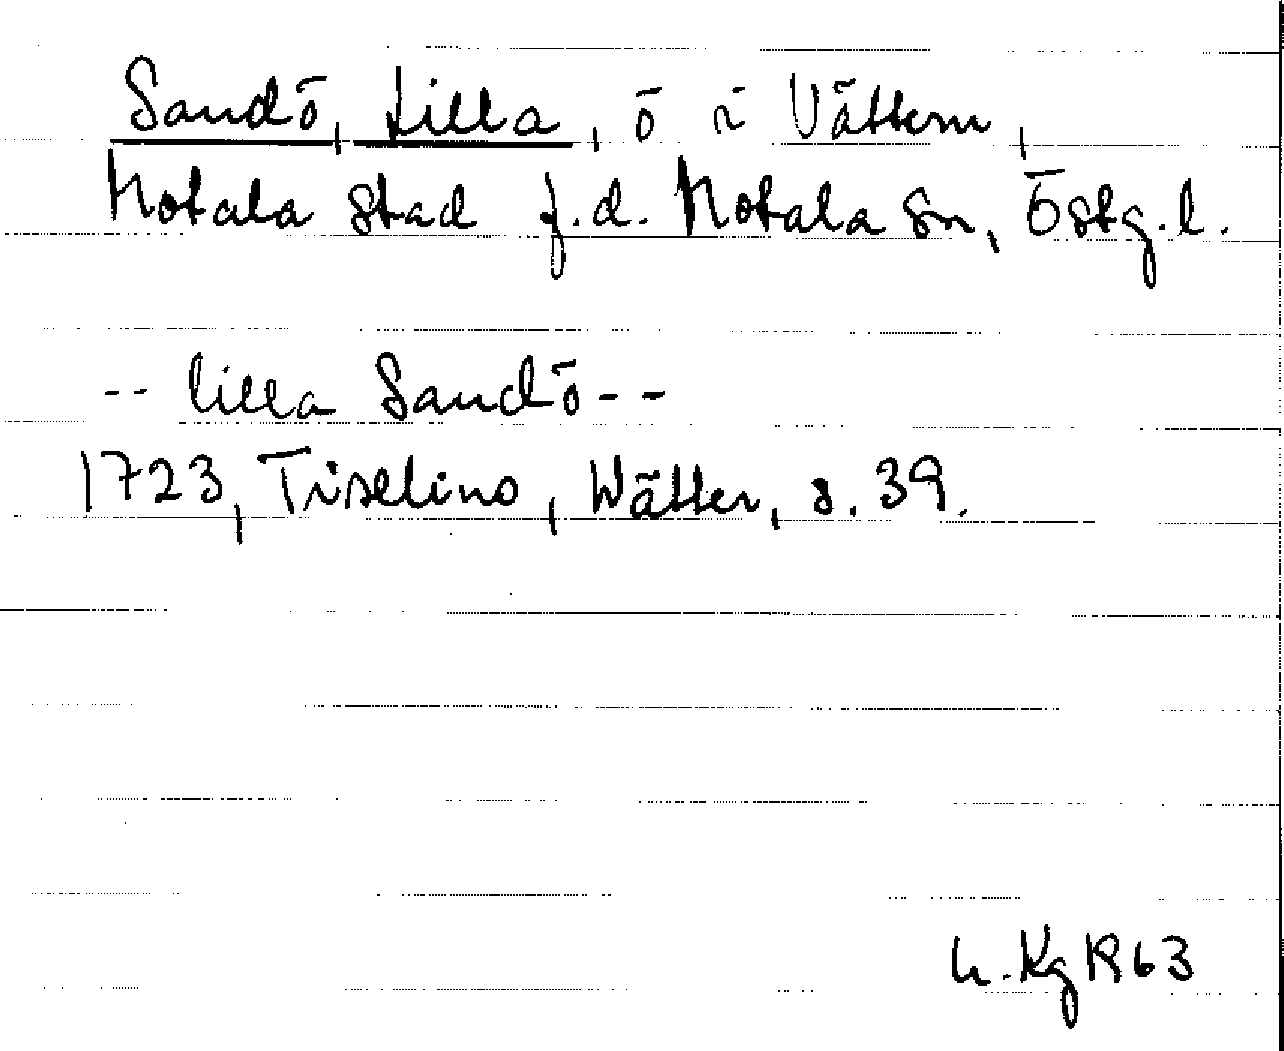 Sandö, Lilla, ö i Vättern,
Motala stad f.d. Motala sn, Östg.l.
-- lilla Sandö --
1723, Tiselius, Wätter, s. 39.
1963